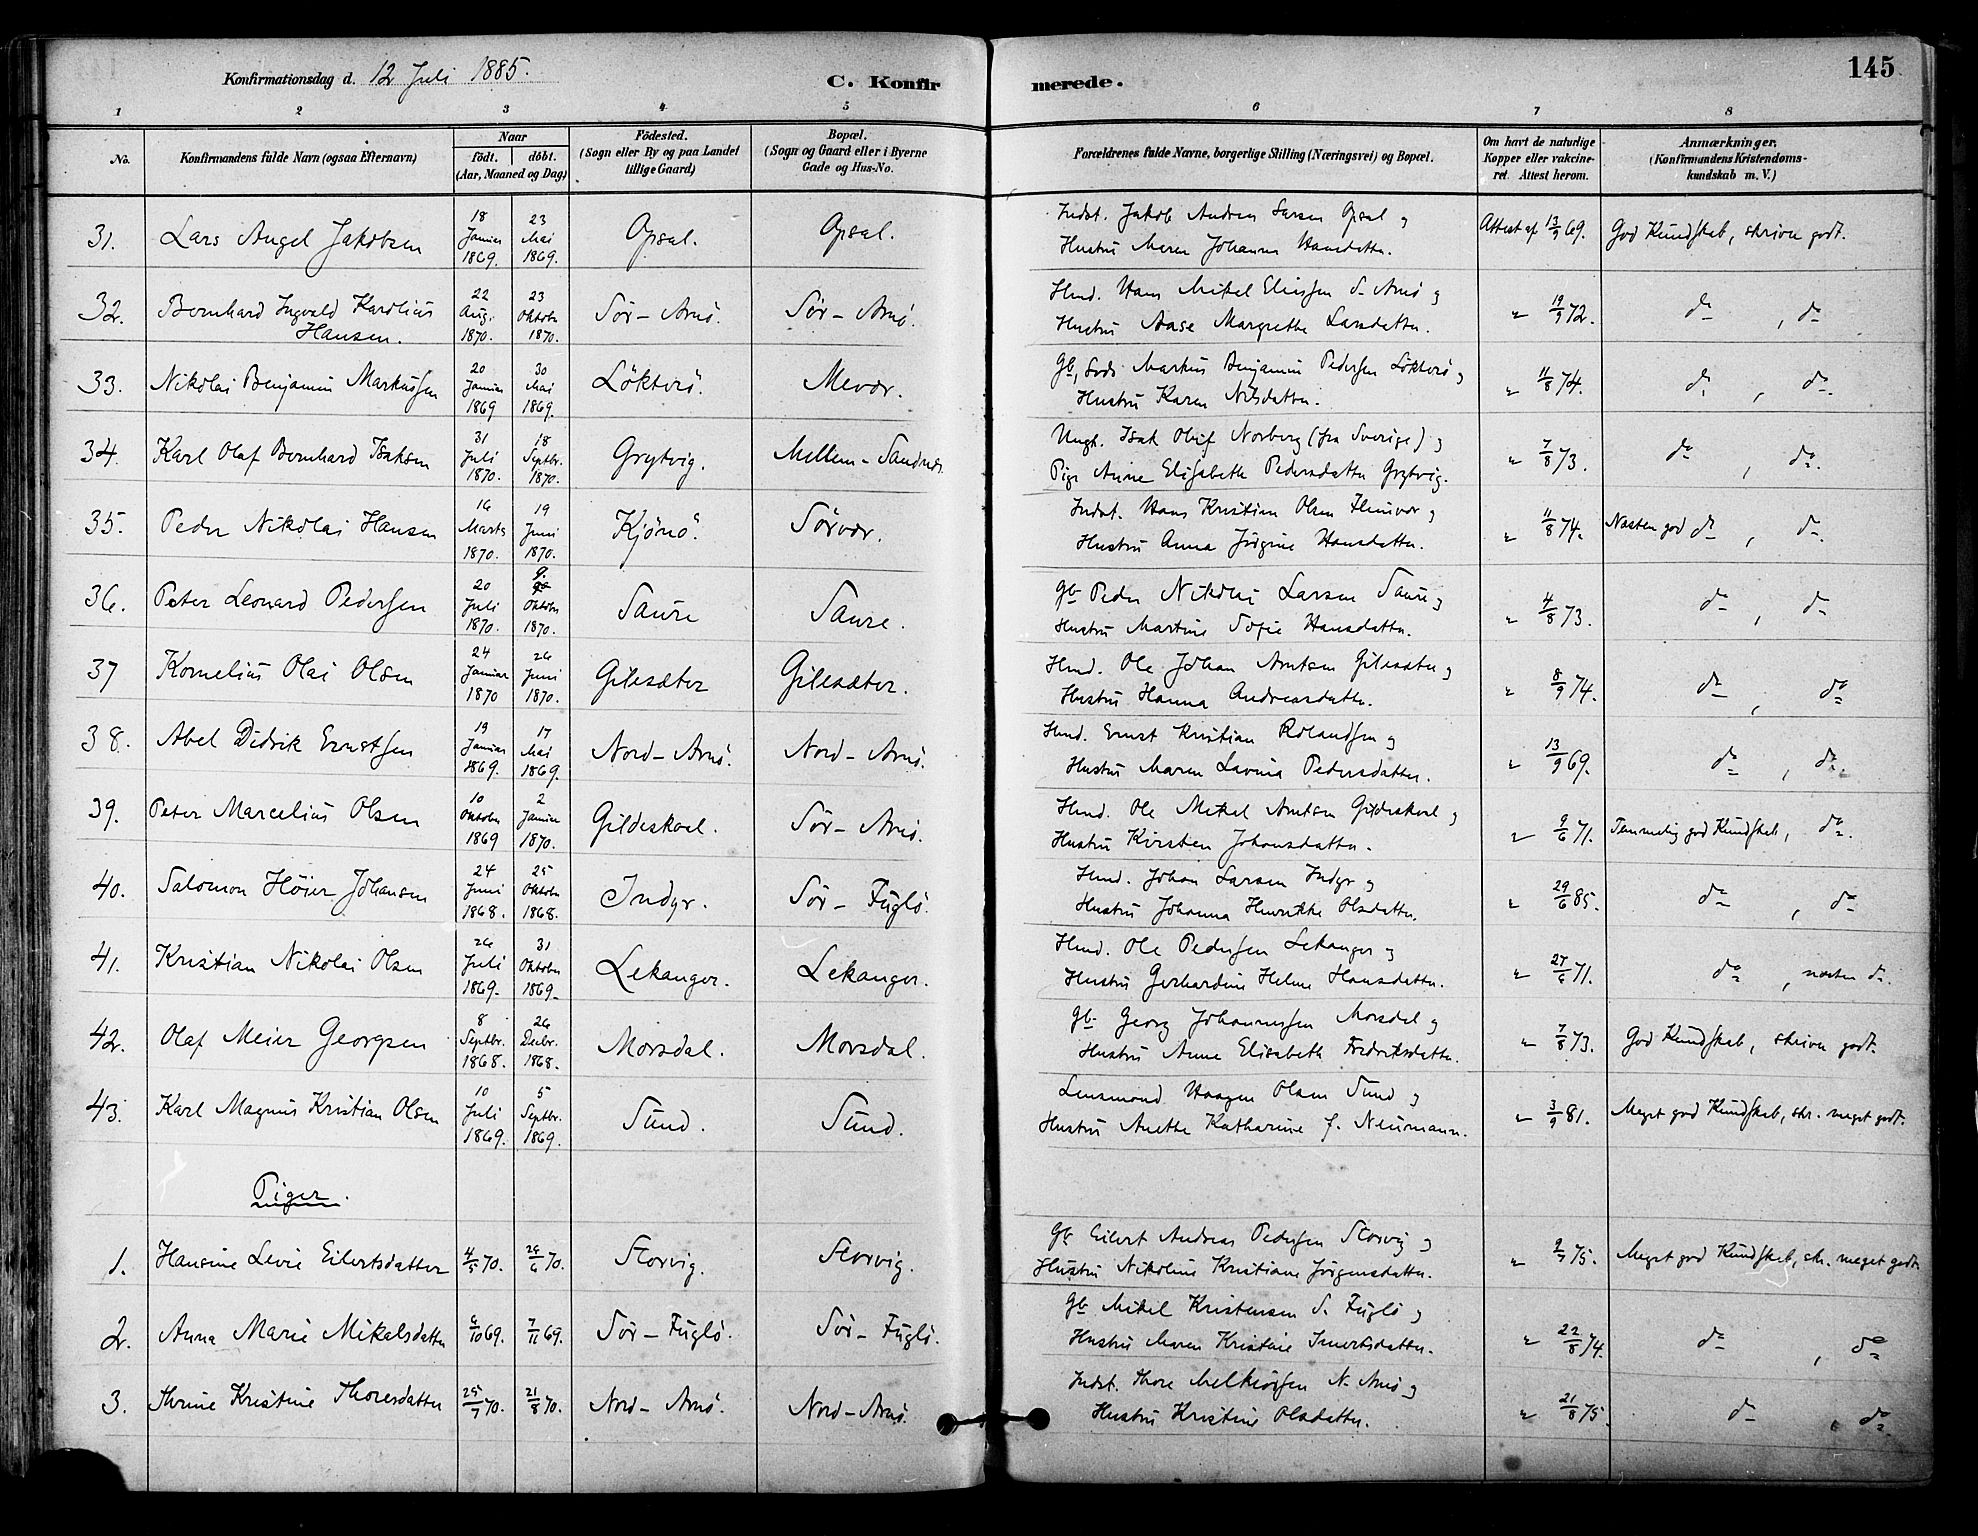 Konfirmationsdag d. 12 Juli 1885.
C. Konfirmerede.
145
1 2 3 4 5 6 7 8
No.
Konfirmandens fulde Navn (ogsaa Efternavn)
Naar
födt. döbt.
(Aar, Maaned og Dag)
Födested.
(Sogn eller By og paa Landet tillige Gaard)
Bopæl.
(Sogn og Gaard eller i Byerne Gade og Hus-No.
Forældrenes fulde Navne, borgerlige Stilling (Næringsvei) og Bopæl.
Om havt de naturlige Kopper eller vakcineret. Attest herom.
Anmærkninger.
(Konfirmandens Kristendomskundskab m. V.)
31. Lars Angel Jakobsen 18 Januar 1869. 23 Mai 1869. Opsal. Opsal. Indst. Jakob Andreas Larsen Opsal og
Hustru Maren Johanna Hansdatter. Attest af 13/9 69. God Kundskab, skriver godt.
32. Bernhard Ingvald Karolius Hansen. 22 Aug. 1870. 23 Oktober 1870. Sør-Arnö. Sør-Arnö. Hmd. Hans Mikal Eliassen S. Arnö og
Hustru Aase Margrethe Larsdatter. " 19/9 72. do, do
33. Nikolai Benjamin Markussen 20 Januar 1869 30 Mai 1869. Lökterö. Mevær. Gb, Søds. Markus Benjamin Pedersen Lökterö og
Hustru Karen Nilsdatter. " 11/8 74. do, do.
34. Karl Olaf Bernhard Isaksen 31 Juli 1870. 18 Septbr. 1870. Grytvig. Mellem-Sandnes. Ungk. Isak Oluf Norberg (fra Sverige) og
Pige Anne Elisabeth Pedersdatter Grytvig. " 7/8 73. do, do.
35. Peder Nikolai Hansen 16 Marts 1870. 19 Juni 1870. Kjönö. Sørvær. Indst. Hans Kristian Olsen Flinivær og
Hustru Anna Jörgine Hansdatter. " 11/8 74. Næsten god do, do.
36. Peter Leonard Pedersen 20 Juli 1870. 9. Oktober 1870. Saure Saure. Gb. Peder Nikolai Larsen Saure og
Hustru Martine Sofie Hansdatter. " 4/8 73. do, do
37 Kornelius Olai Olsen 24 Januar 1870 26 Juni 1870. Gilesæter Gilesæter. Hmd. Ole Johan Arntsen Gilesæter og
Hustru Hanna Andreasdatter. " 8/9 74. do, do
38. Abel Didrik Ernstsen 19 Januar 1869. 17 Mai 1869. Nord-Arnö. Nord-Arnö. Hmd. Ernst Kristian Rolandsen og
Hustru Maren Lavina Pedersdatter. " 13/9 69. do, do.
39. Peter Marcelius Olsen 10 Oktober 1869 2 Januar 1870. Gildeskaal. Sör-Arnö. Hmd. Ole Mikal Arntsen Gildeskaal og
Hustru Kirsten Johansdatter. " 9/6 71. Temmelig god Kundskab, do.
40. Salomon Höier Johansen 24 Juni 1868. 25 Oktober 1868. Indyr. Sör-Fuglö. Hmd. Johan Larsen Indyr og
Hustru Johanna Henrikke Olsdatter. " 29/6 85. do, do
41. Kristian Nikolai Olsen 26 Juli 1869. 31 Oktober 1869. Lekanger. Lekanger. Hmd. Ole Pedersen Lekanger og
Hustru Gerhardine Helene Hansdatter. " 27/6 71. do, næsten do.
42. Olaf Meier Georgsen 8 Septbr. 1868. 26 Decbr. 1868. Morsdal. Morsdal. Gb. Georg Johannessen Morsdal og
Hustru Anne Elisabeth Fredriksdatter. " 7/8 73. God Kundskab, skriver godt.
43. Karl Magnus Kristian Olsen 10 Juli 1869. 5 Septbr. 1869. Sund. Sund. Lensmand Haagen Olsen Sund og
Hustru Anette Katharine f. Neumann. " 3/9 81. Meget god Kundskab, skr. meget godt.
Piger.
1. Hansine Levie Eilertsdatter 4/5 70. 26/6 70. Storvig. Storvig. Gb. Eilert Andreas Pedersen Storvig og
Hustru Nikoline Kristiane Jörgensdatter. " 75. Meget god Kundskab, skr. meget godt.
2. Anna Marie Mikalsdatter 6/10 69. 7/11 69. Sör-Fuglö. Sör-Fuglö. Gb. Mikal Kristensen S. Fuglö og
Hustru Maren Kristine Ivertsdatter. " 22/8 74. do, do
3. Thrine Kristine Thoresdatter 25/7 70. 21/8 70. Nord-Arnö. Nord-Arnö. Indst. Thore Melkiorsen N. Arnö og
Hustru Kristine Olsdatter. " 21/8 75 do, do